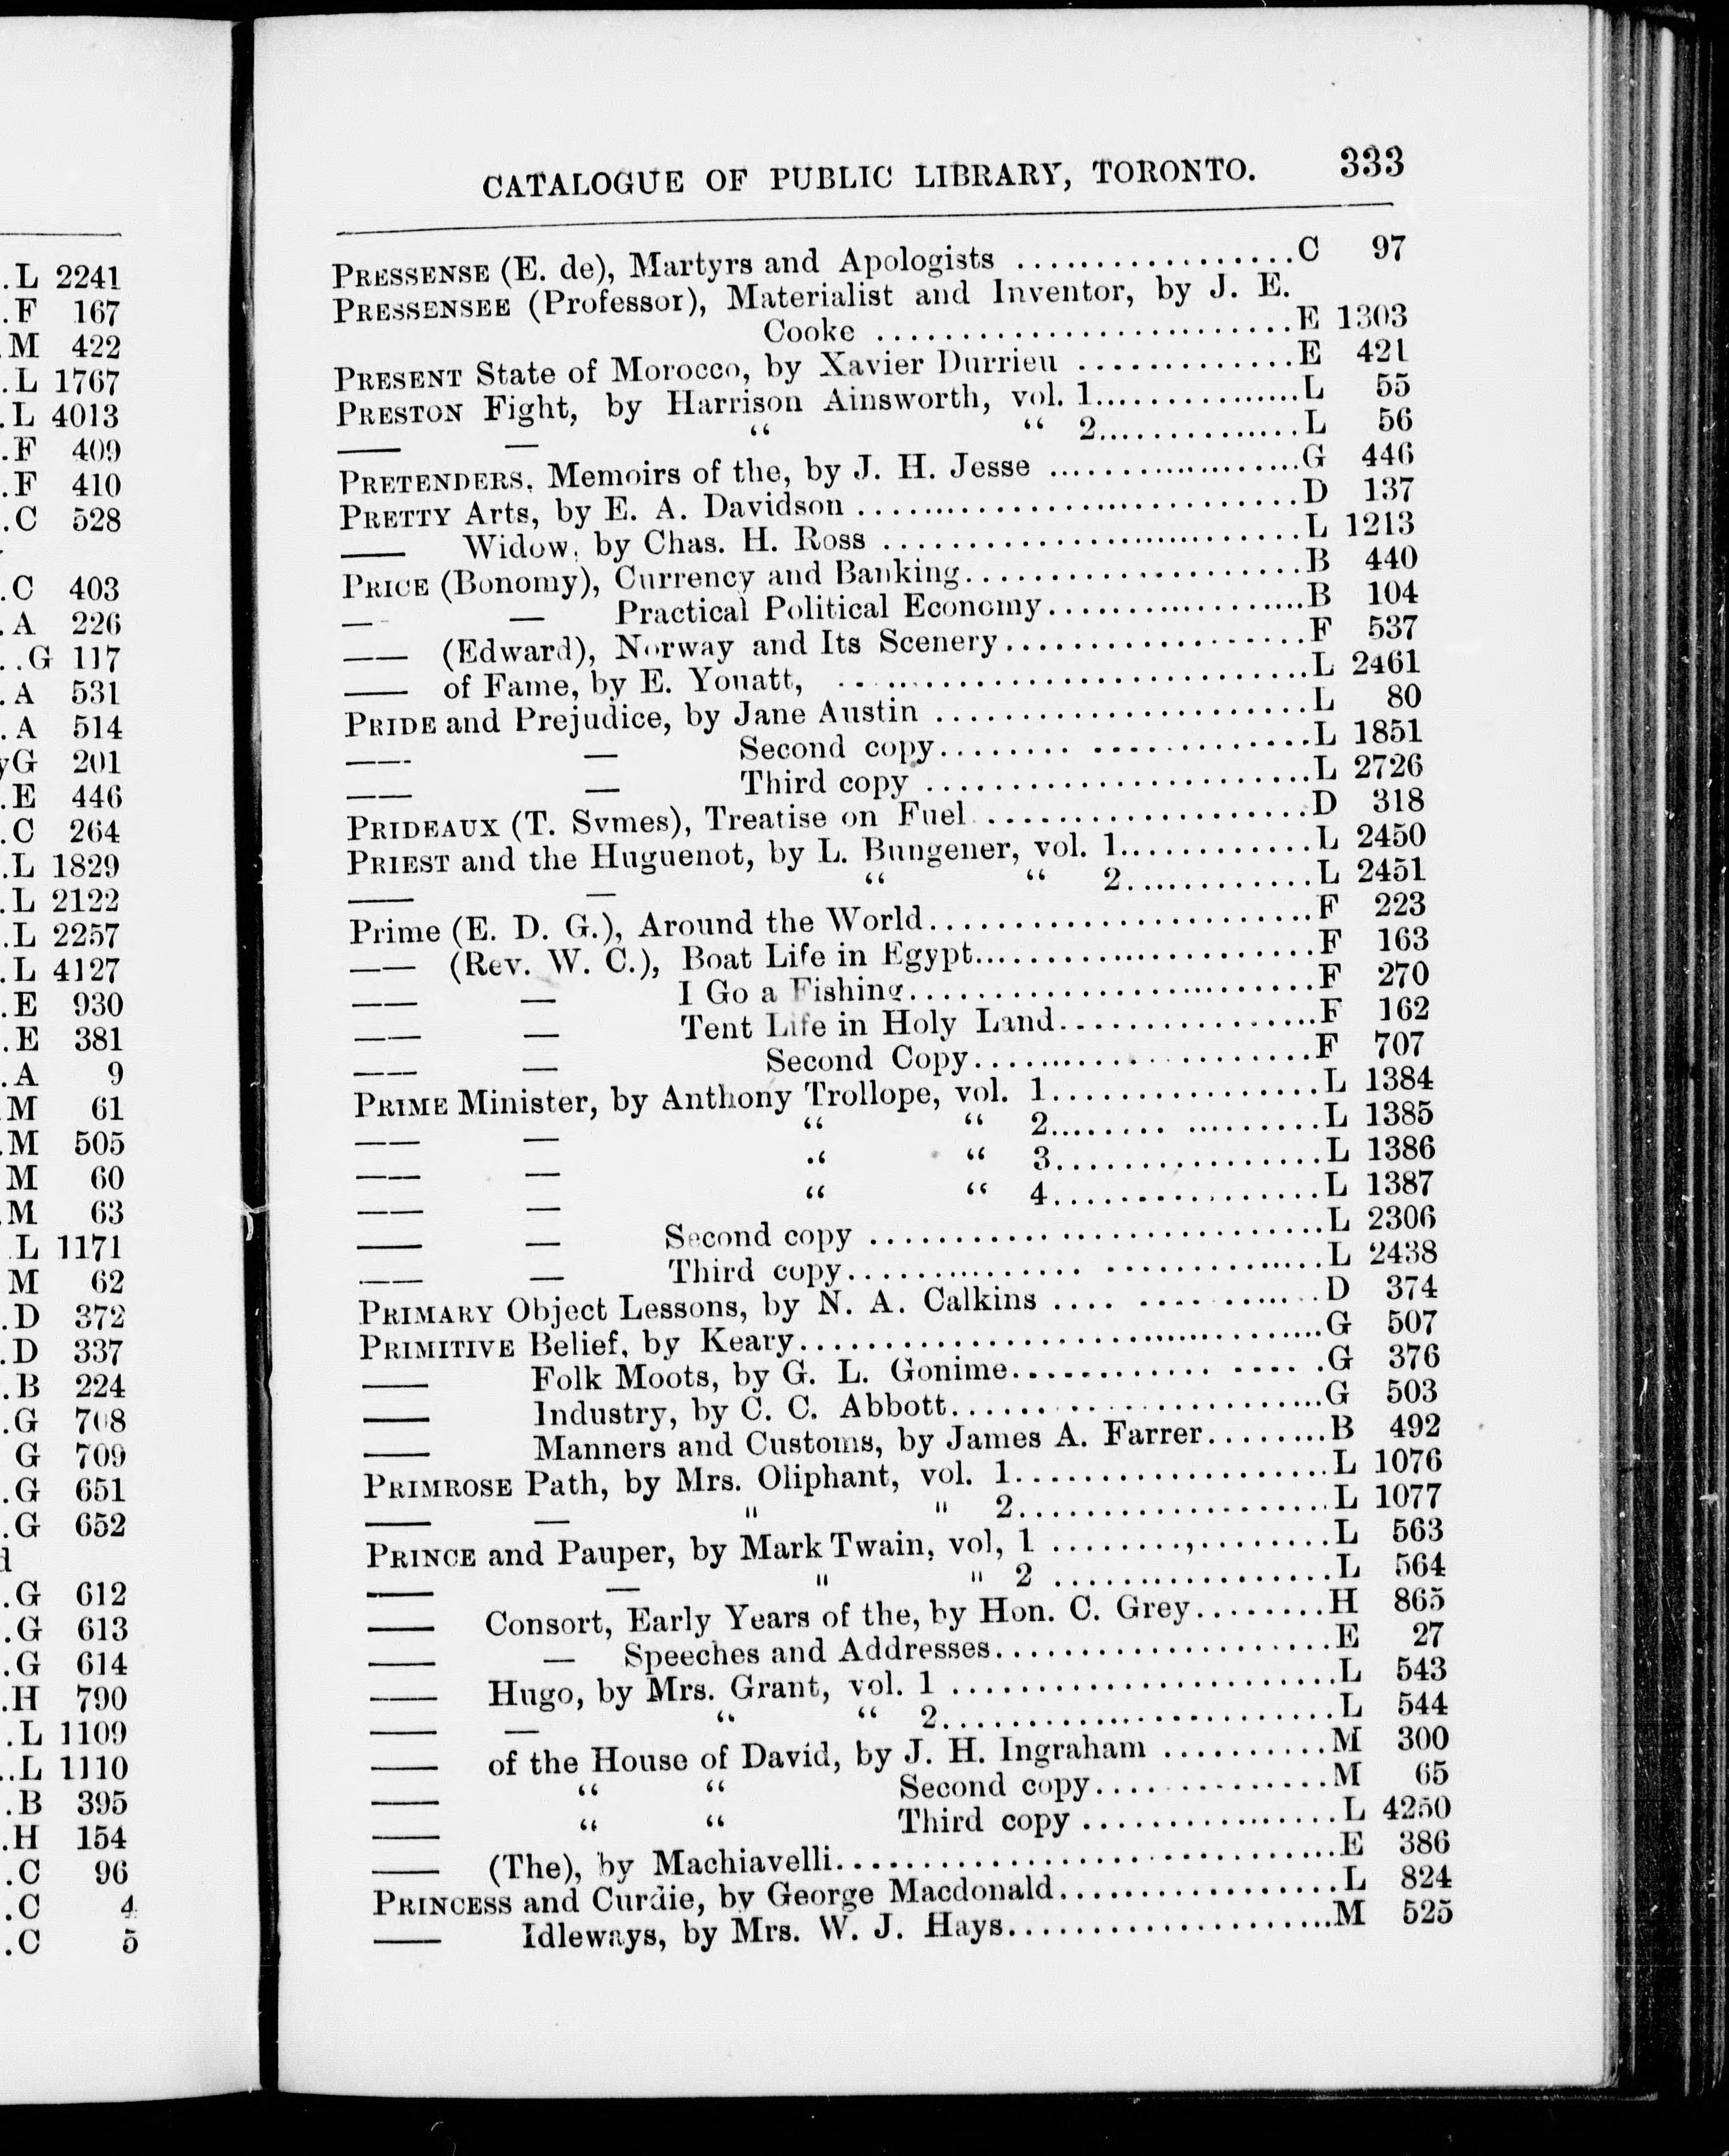 .L 2241
.F 167
.M 422
.L 1767
.L 4013
.F 409
.F 410
.C 528
.C 403
.A 226
..G 117
.A 531
.A 514
yG 201
.E 446
.C 264
.L 1829
.L 2122
.L 2257
.L 4127
.E 930
.E 381
.A 9
M 61
.M 505
M 60
.M 63
L 1171
M 62
.D 372
.D 337
.B 224
.G 708
G 709
.G 651
.G 652
d
.G 612
.G 613
.G 614
.H 790
.L 1109
..L 1110
.B 395
.H 154
.C 96
.C 4
.C 5
CATALOGUE OF PUBLIC LIBRARY, TORONTO. 333
PRESSENSE (E. de), Martyrs and Apologists ..................C 97
PRESSENSEE (Professor), Materialist and Inventor, by J. E.
Cooke ...........................E 1303
PRESENT State of Morocco, by Xavier Durrieu ..............E 421
PRESTON Fight, by Harrison Ainsworth, vol. 1...............L 55
—— — “ “ 2...............L 56
PRETENDERS, Memoirs of the, by J. H. Jesse ..................G 446
PRETTY Arts, by E. A. Davidson ..............................D 137
—— Widow, by Chas. H. Ross ............................L 1213
PRICE (Bonomy), Currency and Banking......................B 440
—— — Practical Political Economy..................B 104
—— (Edward), Norway and Its Scenery....................F 537
—— of Fame, by E. Youatt, ..............................L 2461
PRIDE and Prejudice, by Jane Austin ........................L 80
—— — Second copy........ ..............L 1851
—— — Third copy ........................L 2726
PRIDEAUX (T. Symes), Treatise on Fuel ....................D 318
PRIEST and the Huguenot, by L. Bungener, vol. 1............L 2450
—— — “ “ 2............L 2451
Prime (E. D. G.), Around the World........................F 223
—— (Rev. W. C.), Boat Life in Egypt......................F 163
—— — I Go a Fishing..........................F 270
—— — Tent Life in Holy Land................F 162
—— — Second Copy......................F 707
PRIME Minister, by Anthony Trollope, vol. 1................L 1384
—— — “ “ 2........ ..........L 1385
—— — “ “ 3................L 1386
—— — “ “ 4................L 1387
—— — Second copy ............................L 2306
—— — Third copy.............. ..............L 2438
PRIMARY Object Lessons, by N. A. Calkins .... ............D 374
PRIMITIVE Belief, by Keary..................................G 507
—— Folk Moots, by G. L. Gonime............ .... .G 376
—— Industry, by C. C. Abbott........................G 503
—— Manners and Customs, by James A. Farrer.........B 492
PRIMROSE Path, by Mrs. Oliphant, vol. 1....................L 1076
—— — " " 2....................L 1077
PRINCE and Pauper, by Mark Twain, vol, 1 .........,........L 563
—— — " " 2 ..................L 564
—— Consort, Early Years of the, by Hon. C. Grey.........H 865
—— — Speeches and Addresses......................E 27
—— Hugo, by Mrs. Grant, vol. 1 ........................L 543
—— — “ “ 2........................L 544
—— of the House of David, by J. H. Ingraham ..........M 300
—— “ “ Second copy...............M 65
—— “ “ Third copy ................L 4250
—— (The), by Machiavelli................................E 386
PRINCESS and Curdie, by George Macdonald..................L 824
—— Idleways, by Mrs. W. J. Hays......................M 525